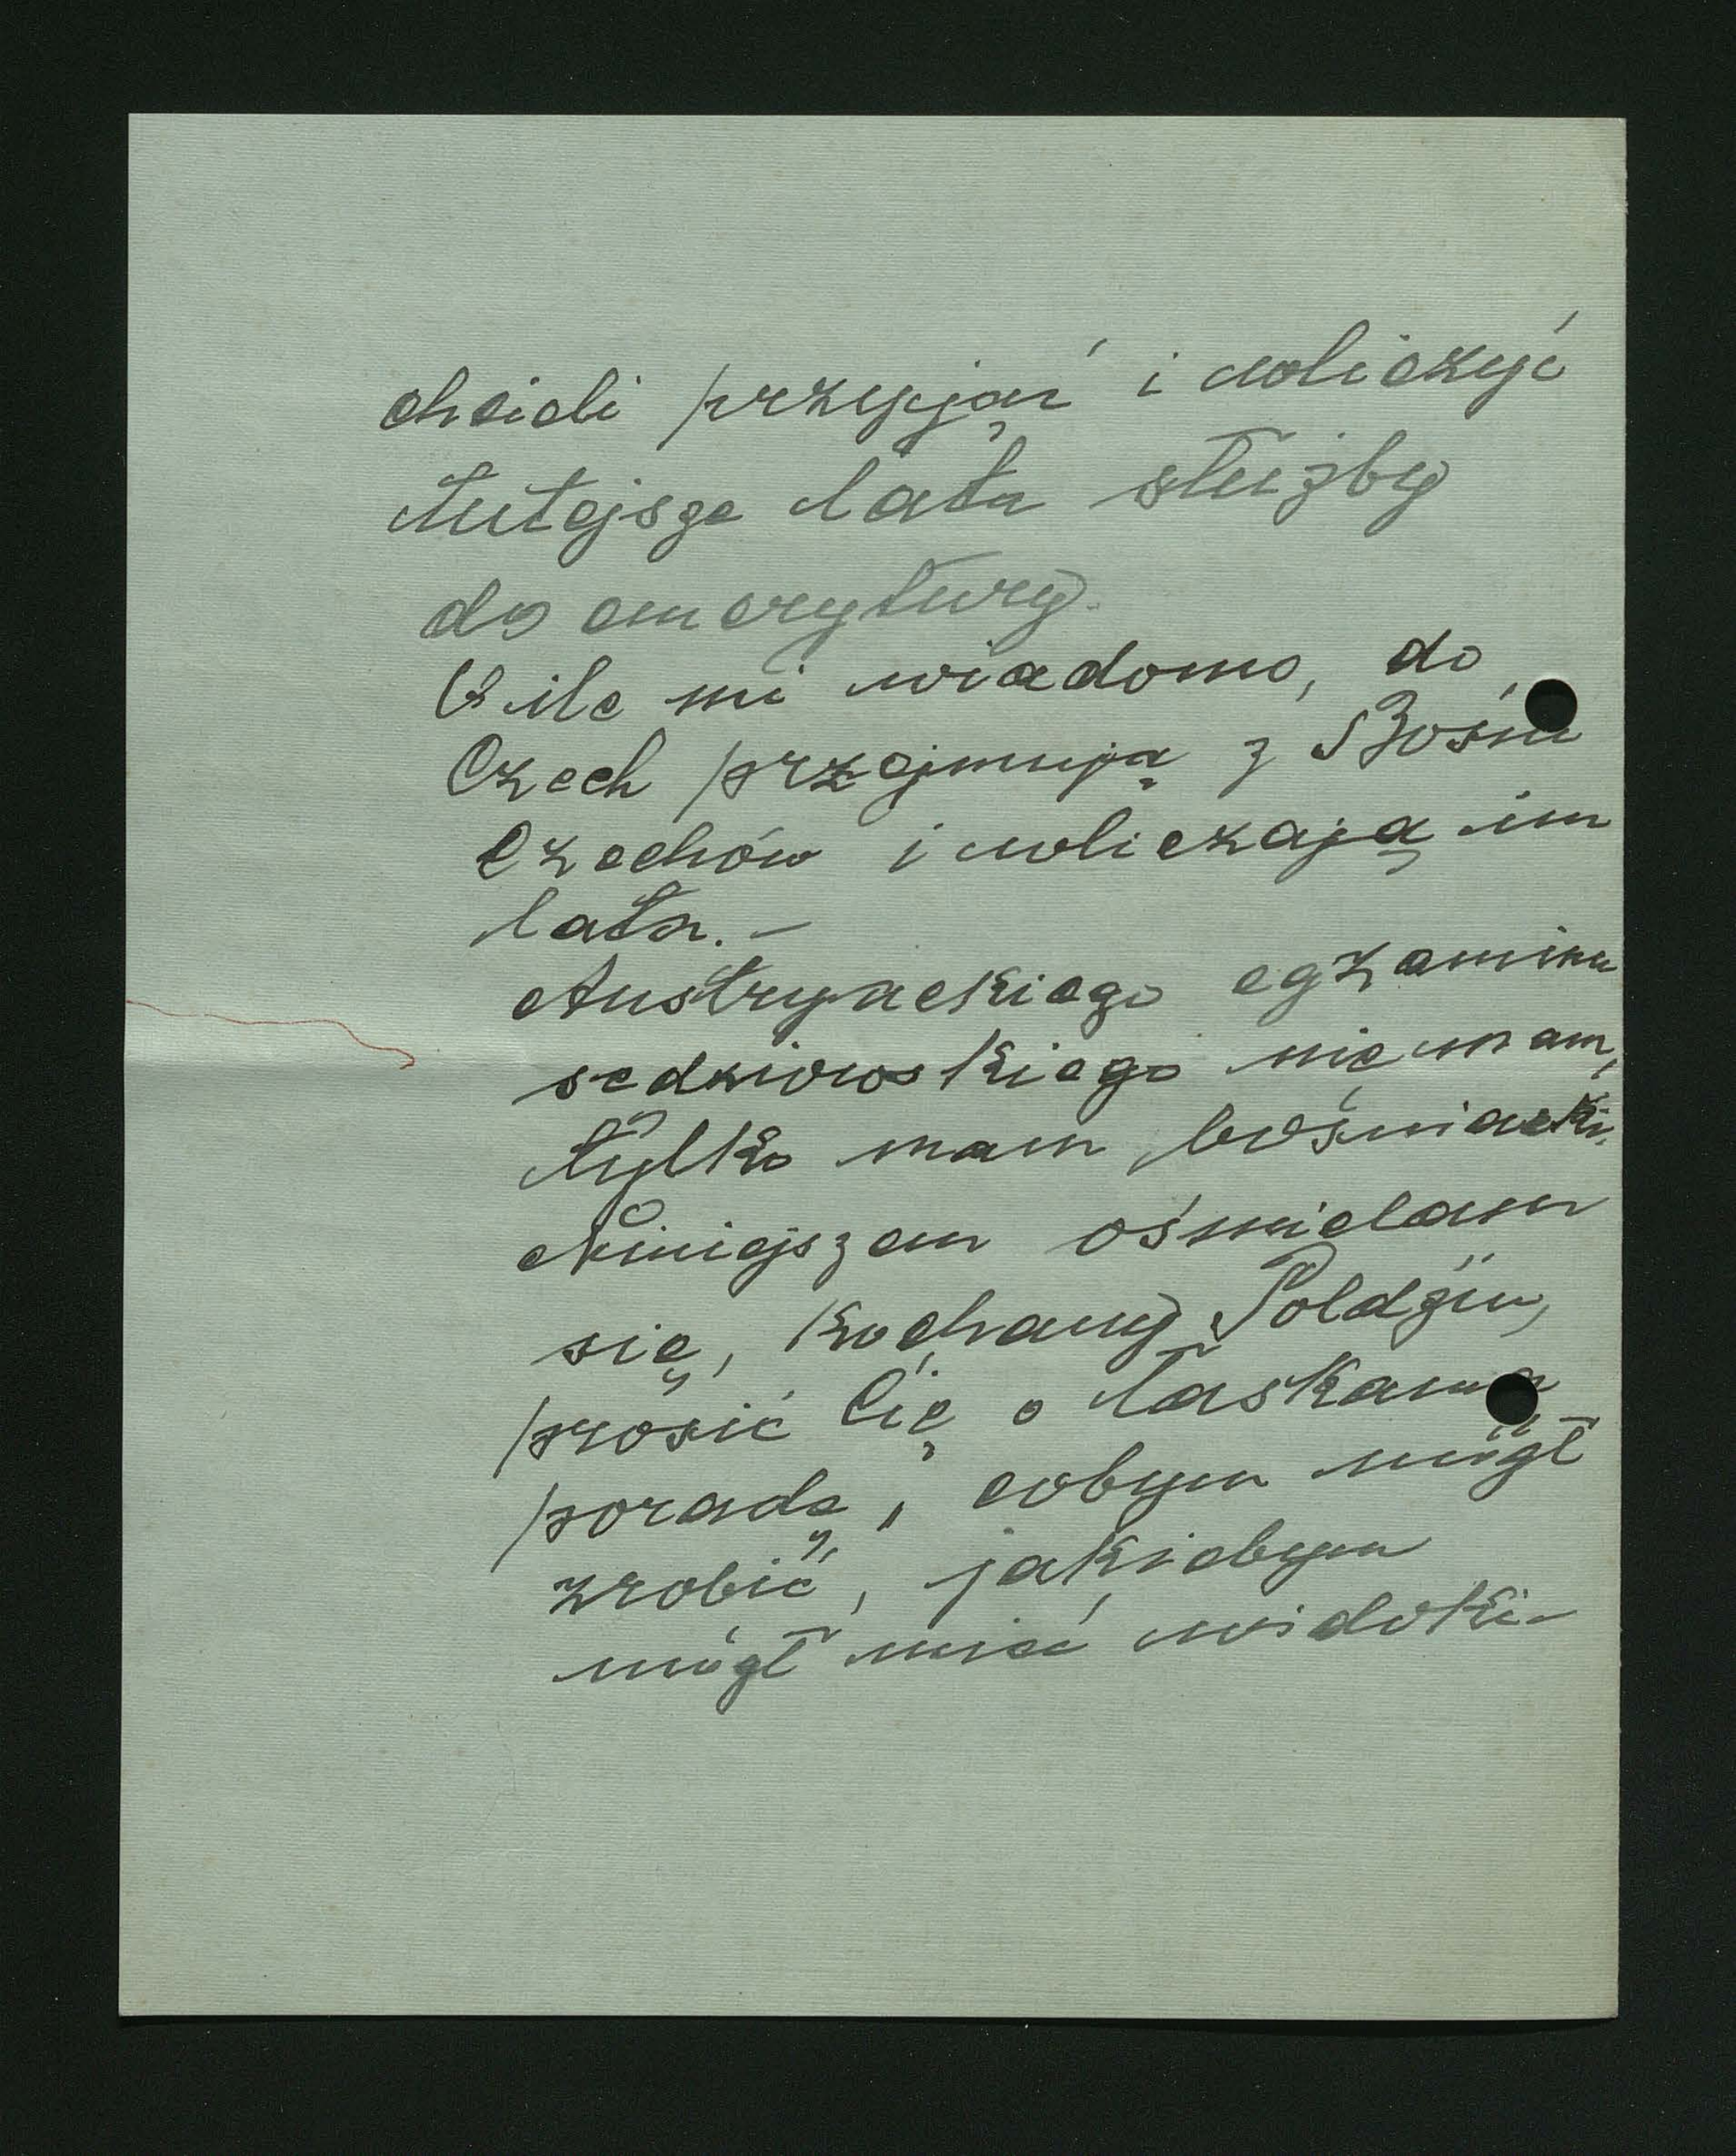 chcieli przyjąć i wliczyć
tutejsze lata służby
do emerytury.
O ile mi wiadomo, do
Czech przejmują z Bośni
Czechów i wliczają im
lata. –
Austryackiego egzaminu
sędziowskiego nie mam,
tylko mam bośniacki.
Niniejszem ośmielam
się, kochany Poldziu,
prosić Cię o łaskawą
poradę, cobym mógł
zrobić, jakiebym
mógł mieć widoki –